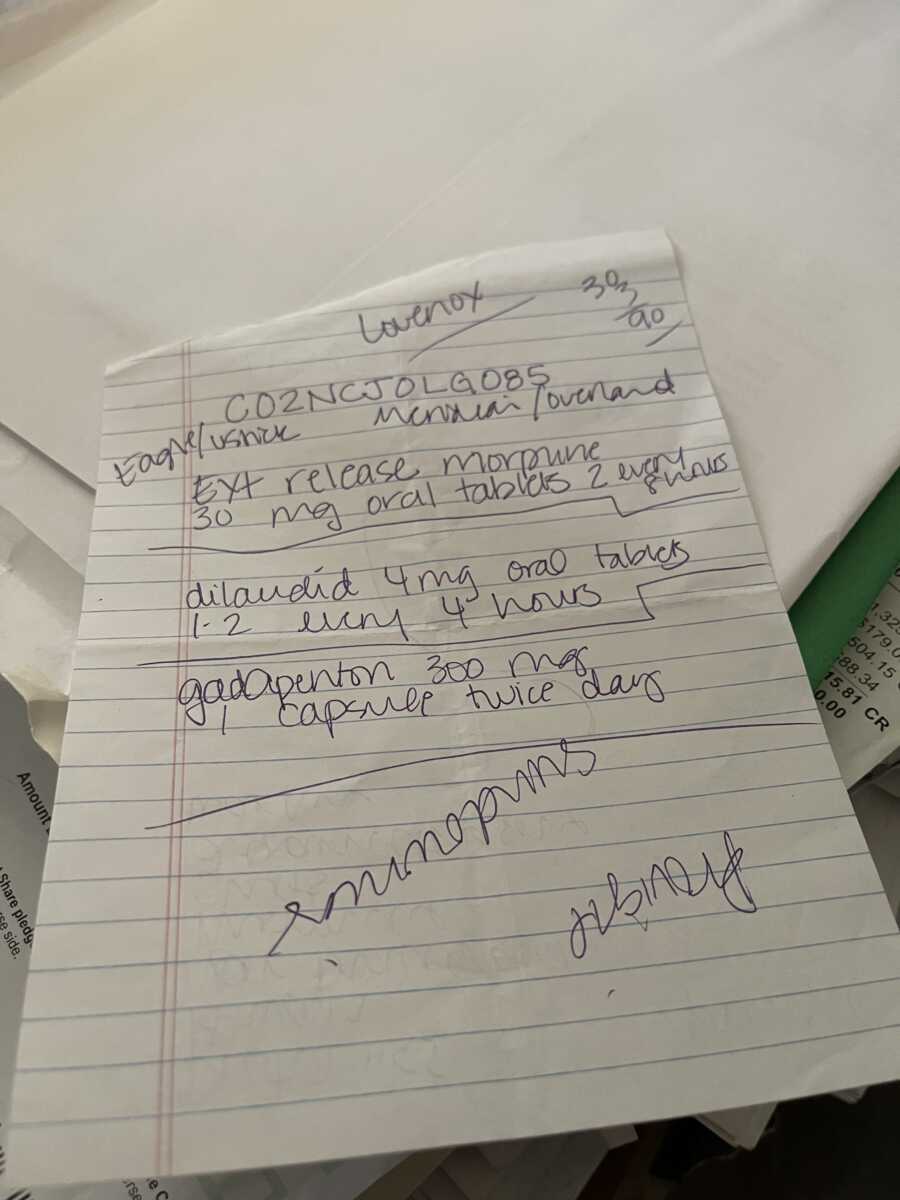 Lovenox
30
/90
C02NCJOLG085
Eagle/ustick
/overland
Ext release morpuine
30 mg oral tablets 2 every
8 hours
dilaudid 4mg oral tablets
1-2 every 4 hours
gadapenton 300 mg
1 capsule twice day
Amount
Share pledg
se side.
1,325
$179.0
504.15
88.34
15.81 CR
0.00